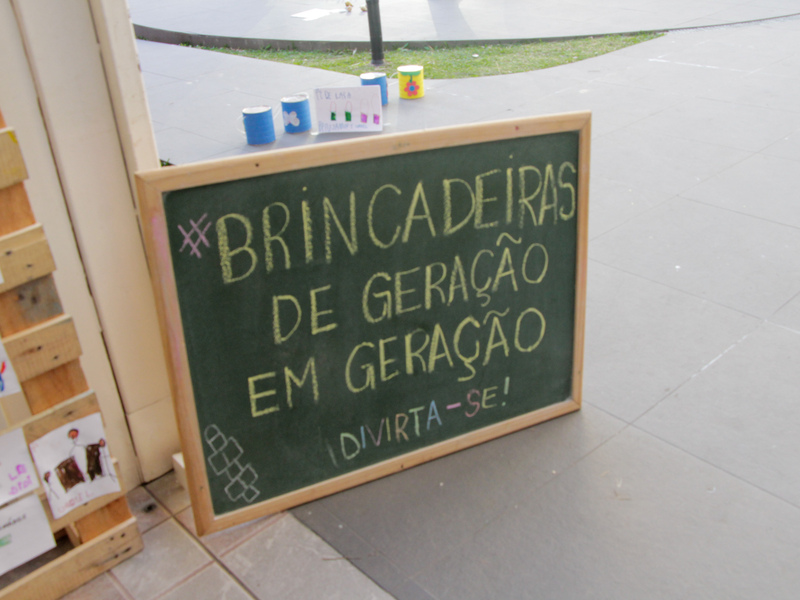 #BRINCADEIRAS
DE GERAÇÃO
EM GERAÇÃO
DIVIRTA-SE!